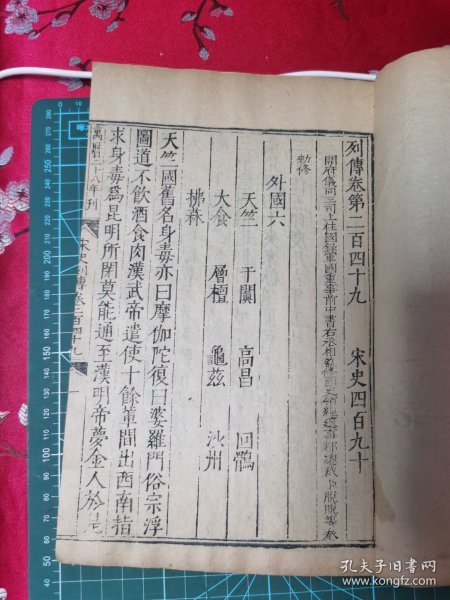 列傳卷第二百四十九 宋史四百九十
開府儀同三司上柱國錄軍國重事前中書右丞相監修國史領經筵事都總裁臣脫脫等奉
勑修
外國六
天竺 于闐 高昌 回鶻
大食 層檀 龜茲 沙州
拂菻
天竺國舊名身毒亦曰摩伽陀復曰婆羅門俗宗浮
圖道不飲酒食肉漢武帝遣使十餘輩間出西南指
求身毒爲昆明所閉莫能通至漢明帝夢金人於是
萬曆二十八年刊
宋史列傳卷二百四十九
孔夫子旧书网
https://book.kongfz.com